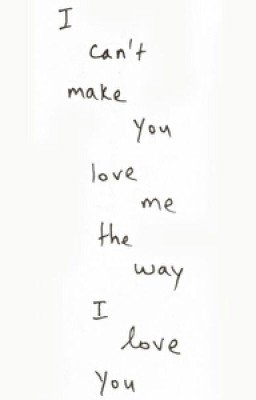 I
can't
make
you
love
me
the
way
I
love
you